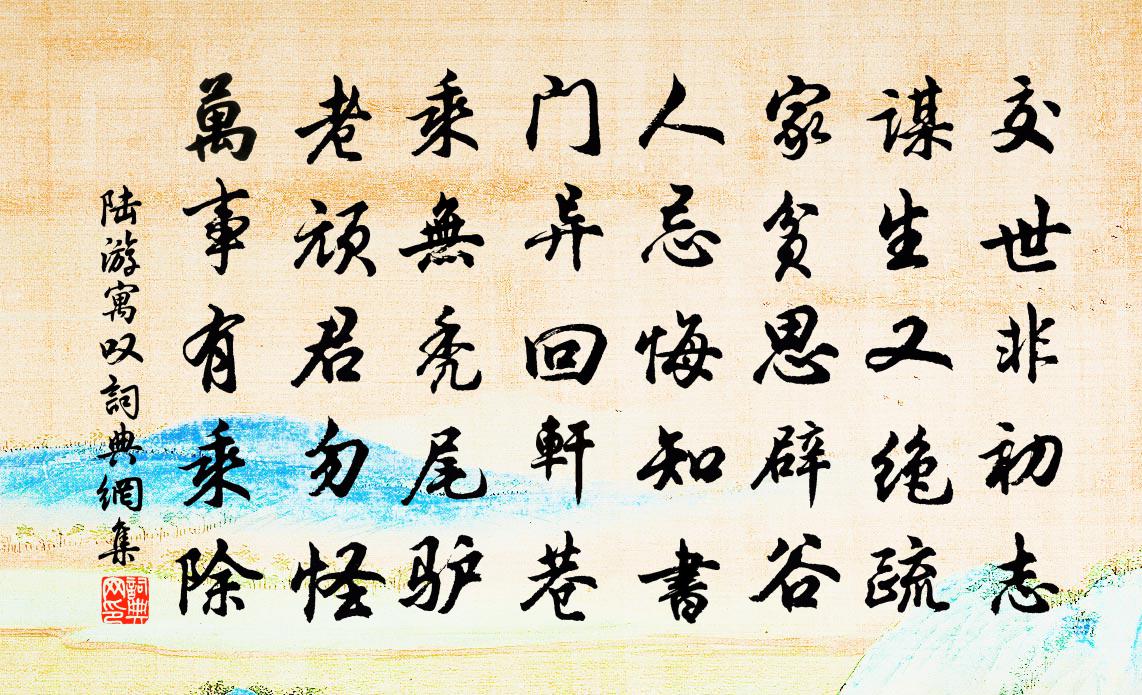 交世非初志
谋生又绝疏
家贫思辟谷
人忌悔知書
门异回軒巷
乘無秃尾驴
老顽君勿怪
萬事有乘除
陆游寓叹詞典網集
詞典网印